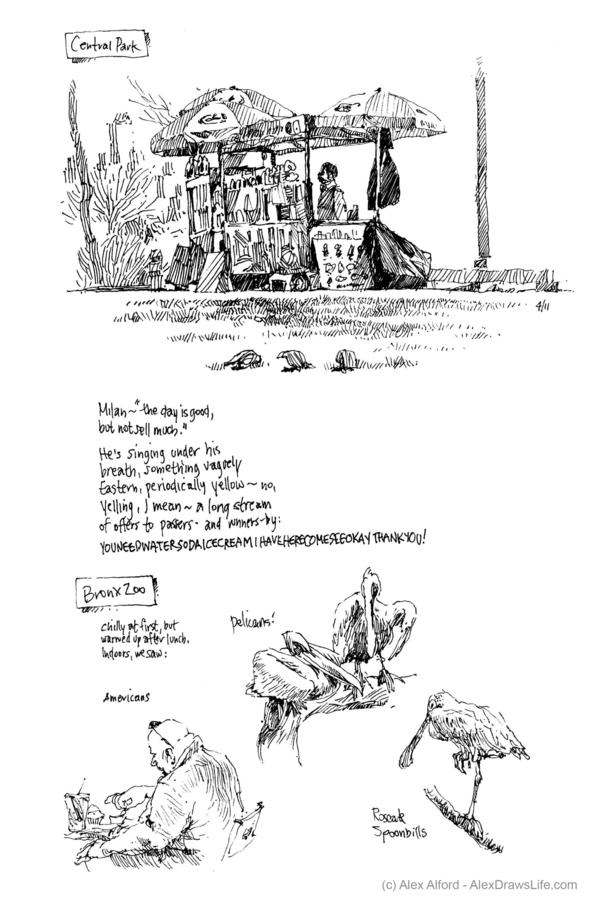 Central Park
4/11
Milan ~ "the day is good,
but not sell much."
He's singing under his
breath, something vaguely
Eastern, periodically yellow ~ no,
yelling, I mean ~ a long stream
of offers to passers- and runners-by:
YOUNEEDWATERSODAICECREAMIHAVEHERECOMESEEOKAYTHANKYOU!
Bronx Zoo
chilly at first, but
warmed up after lunch.
Indoors, we saw:
pelicans!
Americans
Roseate
Spoonbills
(c) Alex Alford - AlexDrawsLife.com